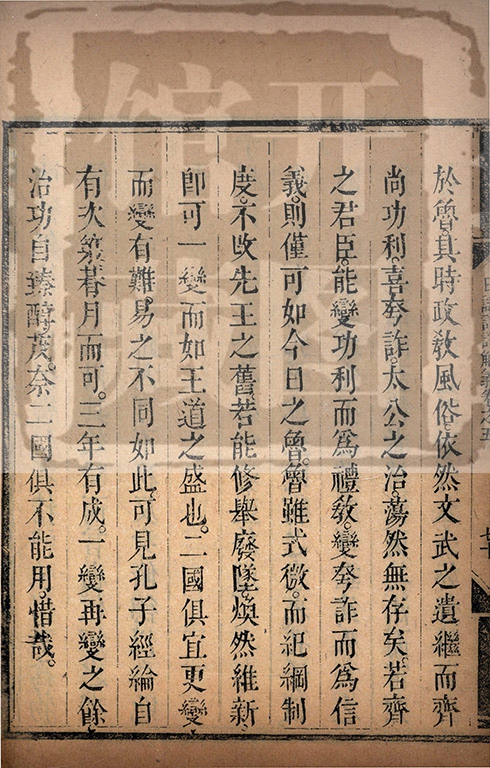 於魯其時政敎風俗依然文武之遺繼而齊
尚功利喜夸詐太公之治蕩然無存矣若齊
之君臣能變功利而爲禮敎變夸詐而爲信
義則僅可如今日之魯魯雖式微而紀綱制
度不改先王之舊若能修舉廢墜煥然維新
卽可一變而如王道之盛也二國俱宜更變
而變有難易之不同如此可見孔子經綸自
有次第朞月而可三年有成一變再變之餘
治功自臻醇茂奈二國俱不能用惜哉